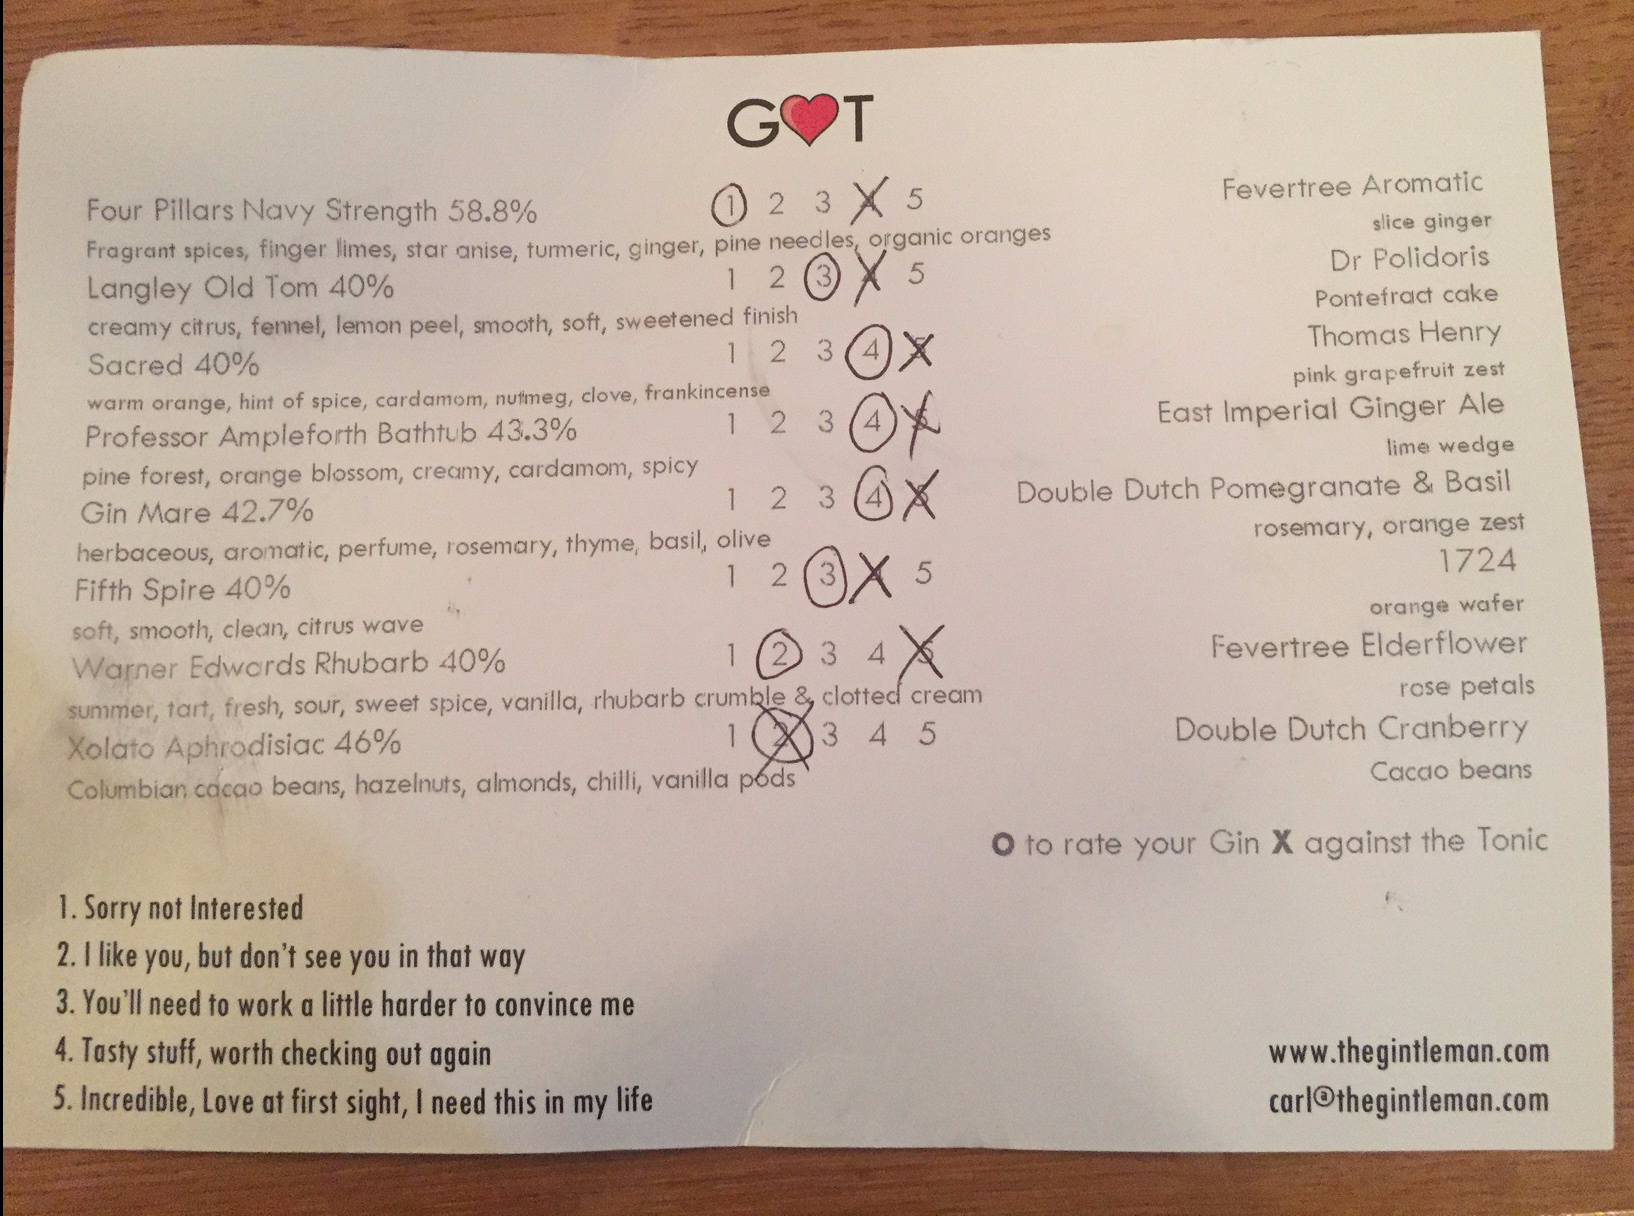 G❤T
Four Pillars Navy Strength 58.8% 1 2 3 4 5 Fevertree Aromatic
Fragrant spices, finger limes, star anise, turmeric, ginger, pine needles, organic oranges slice ginger
Langley Old Tom 40% 1 2 3 4 5 Dr Polidoris
creamy citrus, fennel, lemon peel, smooth, soft, sweetened finish Pontefract cake
Sacred 40% 1 2 3 4 5 Thomas Henry
warm orange, hint of spice, cardamom, nutmeg, clove, frankincense pink grapefruit zest
Professor Ampleforth Bathtub 43.3% 1 2 3 4 5 East Imperial Ginger Ale
pine forest, orange blossom, creamy, cardamom, spicy lime wedge
Gin Mare 42.7% 1 2 3 4 5 Double Dutch Pomegranate & Basil
herbaceous, aromatic, perfume, rosemary, thyme, basil, olive rosemary, orange zest
Fifth Spire 40% 1 2 3 4 5 1724
soft, smooth, clean, citrus wave orange wafer
Warner Edwards Rhubarb 40% 1 2 3 4 5 Fevertree Elderflower
summer, tart, fresh, sour, sweet spice, vanilla, rhubarb crumble & clotted cream rose petals
Xolato Aphrodisiac 46% 1 2 3 4 5 Double Dutch Cranberry
Columbian cacao beans, hazelnuts, almonds, chilli, vanilla pods Cacao beans
O to rate your Gin X against the Tonic
1. Sorry not Interested
2. I like you, but don't see you in that way
3. You'll need to work a little harder to convince me
4. Tasty stuff, worth checking out again
5. Incredible, Love at first sight, I need this in my life
www.thegintleman.com
carl@thegintleman.com